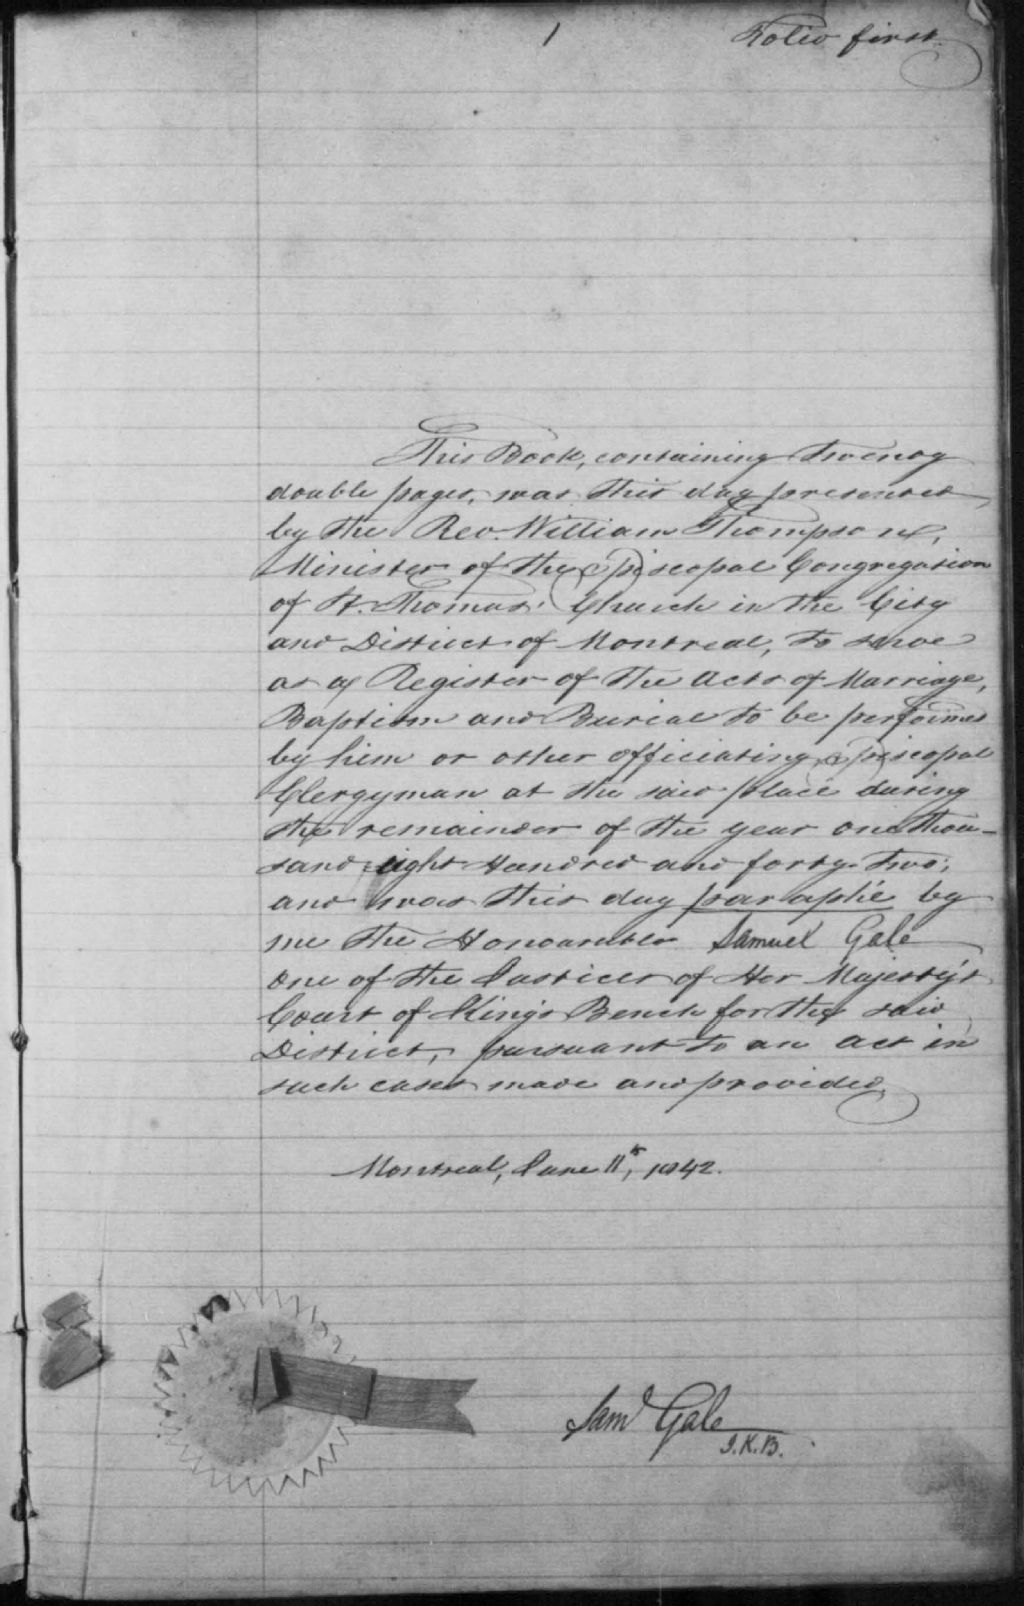 1
Folio first.
This Book, containing twenty
double pages, was this day presented
by the Rev. William Thompson,
Minister of the episcopal Congregation
of St. Thomas' Church in the City
and District of Montreal, to serve
as a Register of the Acts of Marriage,
Baptism and Burial to be performed
by him or other officiating episcopal
Clergyman at the said place during
the remainder of the year one thou-
sand eight Hundred and forty-two;
and was this day paraphé by
me the Honourable Samuel Gale
One of the Justices of Her Majesty's
Court of King's Bench for the said
District, pursuant to an act in
such cases made and provided
Montreal, June 11th, 1842.
Saml Gale
J.K.B.